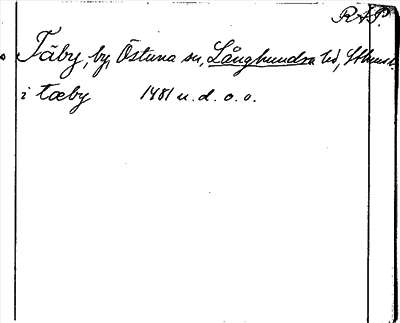 R A P.
Täby, by, Östuna sn, Långhundra hd, Sthmsl.
i tæby 1481 u. d. o. o.